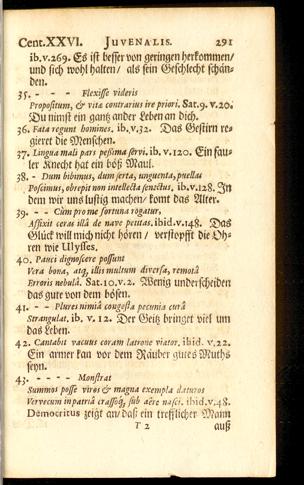 Cent. XXVI. JUVENALIS. 291
ib. v. 269. Es ist besser von geringen herkommen/
und sich wohl halten/ als sein Geschlecht schän-
den.
35. - - - - Flexisse videris
Propositum, & vitæ contrarius ire priori. Sat. 9. v. 20.
Du nimst ein gantz ander Leben an dich.
36. Fata regunt homines. ib. v. 32. Das Gestirn re-
gieret die Menschen.
37. Lingua mali pars pessima servi. ib. v. 120. Ein fau-
ler Knecht hat ein böß Maul.
38. - Dum bibimus, dum serta, unguenta, puellas
Poscimus, obrepit non intellecta senectus. ib. v. 128. In
dem wir uns lustig machen/ komt das Alter.
39. - - Cùm pro me fortuna rogatur,
Affixit ceras illâ de nave petitas. ibid. v. 148. Das
Glück will mich nicht hören/ verstopfft die Oh-
ren wie Ulysses.
40. Pauci dignoscere possunt
Vera bona, atq; illis multum diversa, remotâ
Erroris nebulâ. Sat. 10. v. 2. Wenig underscheiden
das gute von dem bösen.
41. - - Plures nimiâ congesta pecunia curâ
Strangulat. ib. v. 12. Der Geitz bringet viel um
das Leben.
42. Cantabit vacuus coram latrone viator. ibid. v. 22.
Ein armer kan vor dem Räuber gutes Muths
seyn.
43. - - - - Monstrat
Summos posse viros & magna exempla daturos
Vervecum in patriâ crassoq; sub aëre nasci. ibid. v. 48.
Democritus zeigt an/ daß ein trefflicher Mann
T 2 auß